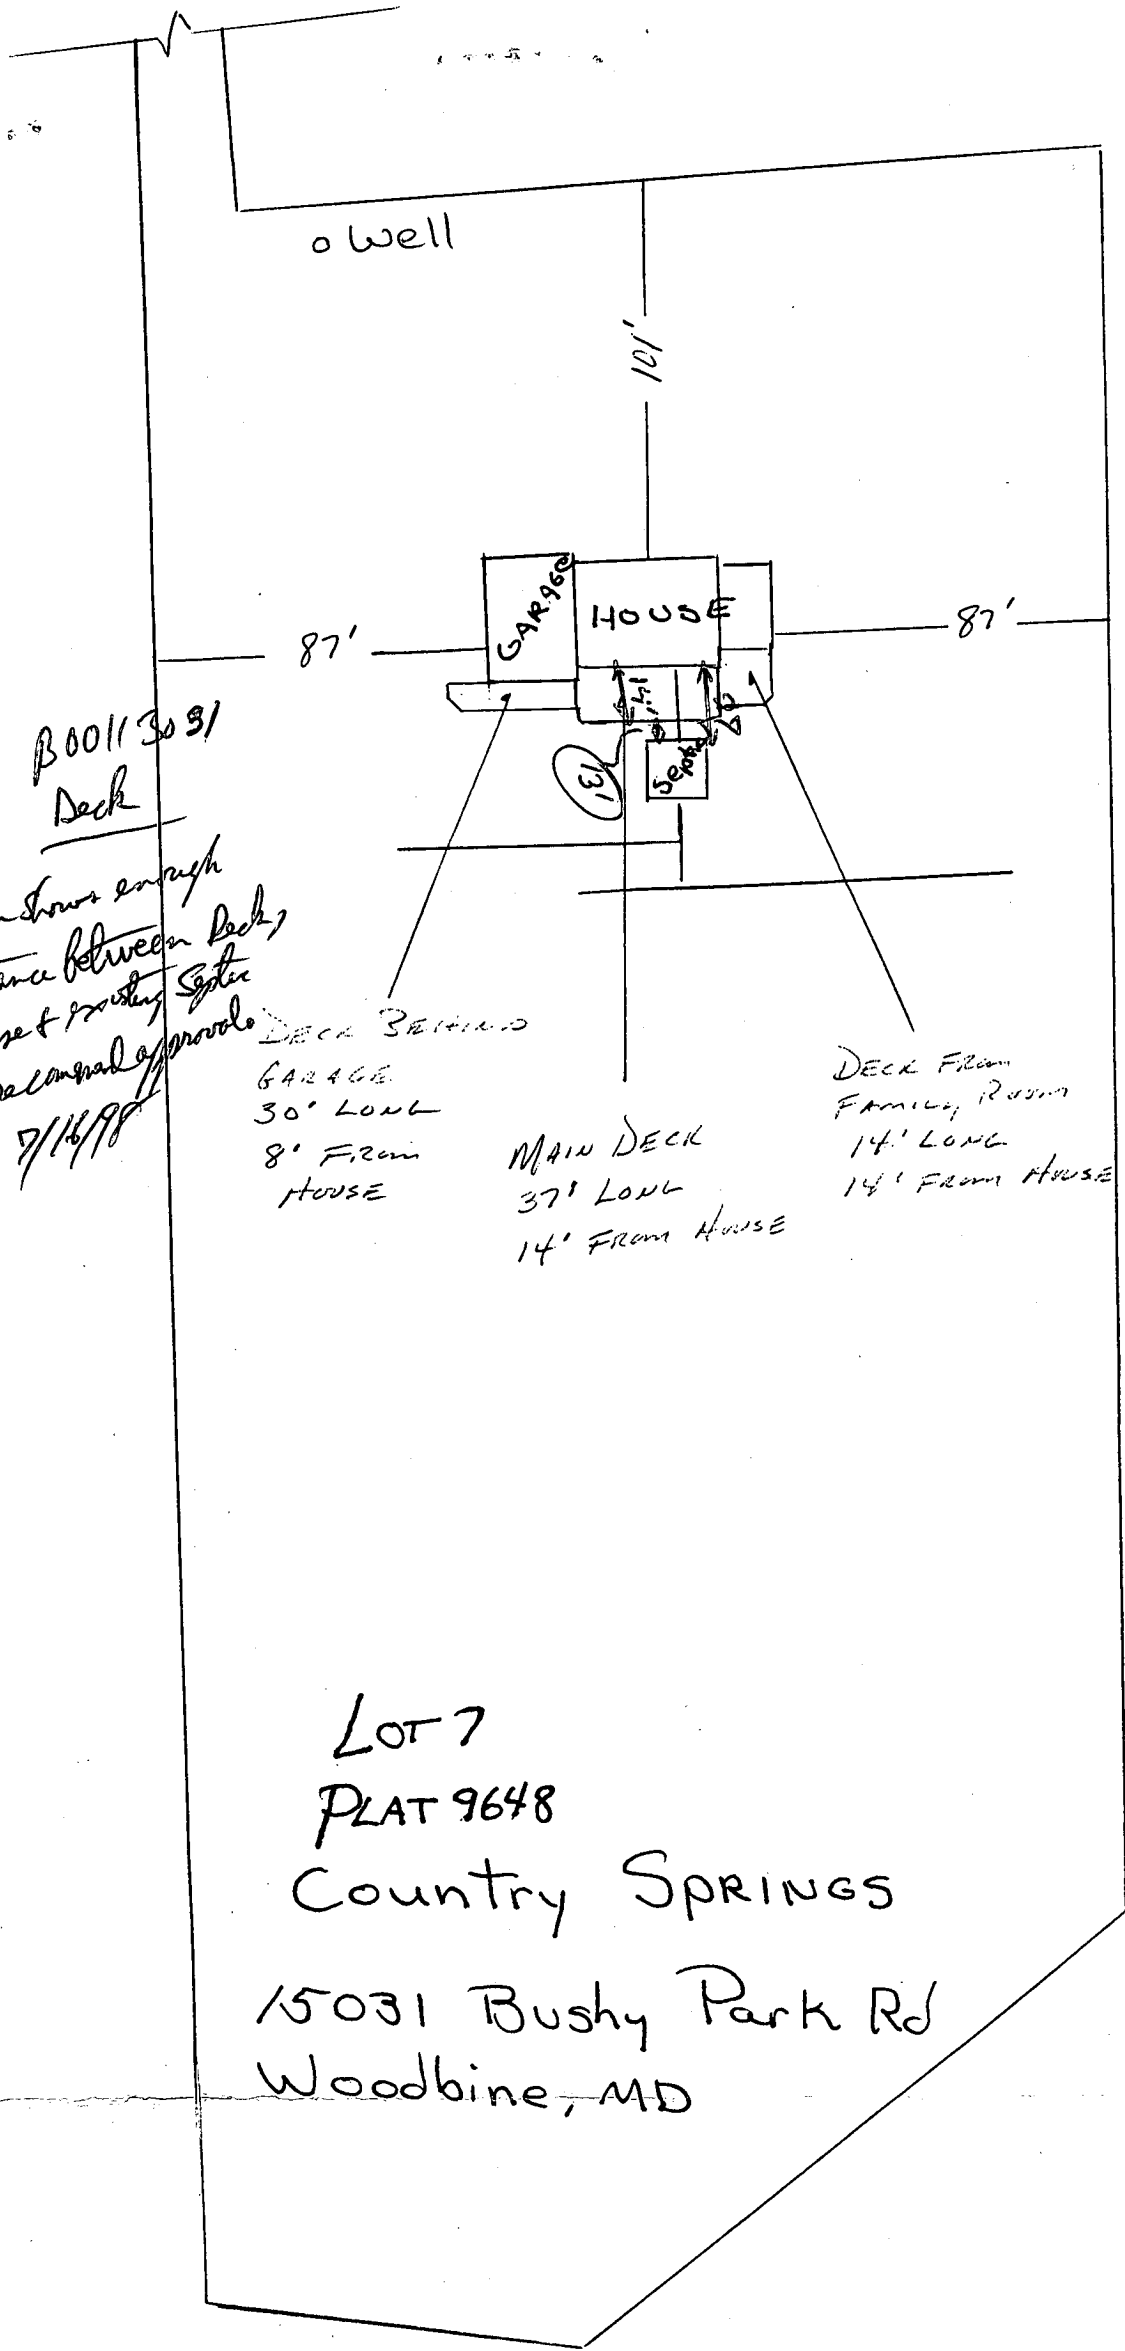 o Well
101'
GARAGE
HOUSE
87'
87'
14'
13'
Septic
B00113031
Deck
shows enough
between Deck,
existing Septic
approval.
7/16/98
DECK BEHIND
GARAGE
30' LONG
8' FROM
HOUSE
MAIN DECK
37' LONG
14' FROM HOUSE
DECK FROM
FAMILY ROOM
14' LONG
14' FROM HOUSE
LOT 7
PLAT 9648
Country SPRINGS
15031 Bushy Park Rd
Woodbine, MD